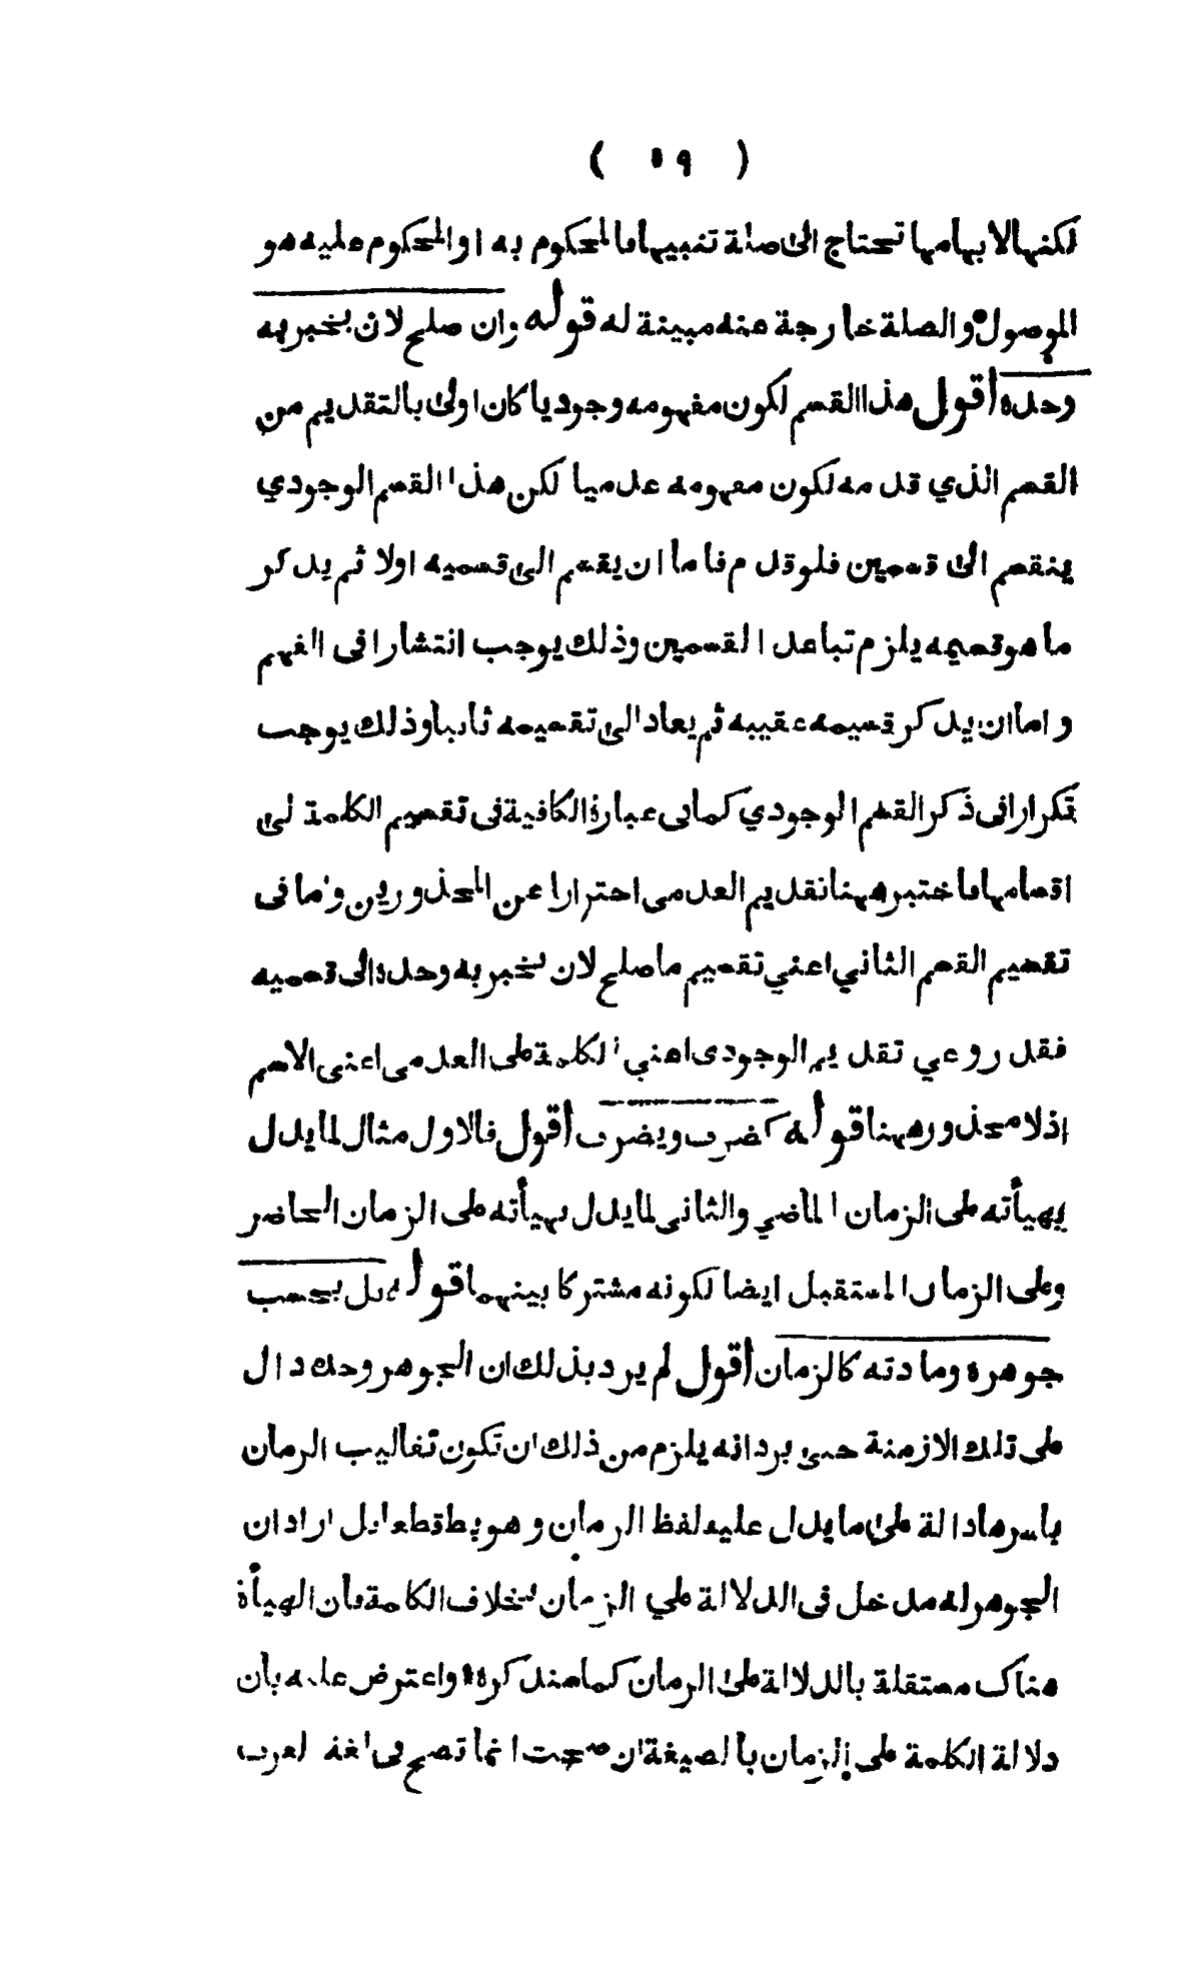 ( ٥٩ )
لكنها لابهامها تحتاج الى صلة تبينها فالمحكوم به او المحكوم عليه هو
الموصول والصلة خارجة عنه مبينة له قوله وان صلح لان يخبر به
وحده أقول هذا القسم لكون مفهومه وجوديا كان اولى بالتقديم من
القسم الذي قدمه لكون مفهومه عدميا لكن هذا القسم الوجودي
ينقسم الى قسمين فلو قدم فاما ان يقسم الى قسميه اولا ثم يذكر
ما هو قسيمه يلزم تباعد القسمين وذلك يوجب انتشارا فى الفهم
واما ان يذكر قسيمه عقيبه ثم يعاد الى تقسيمه ثانيا وذلك يوجب
تكرارا فى ذكر القسم الوجودي كما فى عبارة الكافية فى تقسيم الكلمة لى
اقسامها فاختير ههنا تقديم العدمى احترازا عن المحذورين وما فى
تقسيم القسم الثاني اعني تقسيم ما صلح لان يخبر به وحده الى قسميه
فقد روعي تقديم الوجودى اعني الكلمة على العدمى اعنى الاسم
اذ لا محذور ههنا قوله كضرب ويضرب أقول فالاول مثال لما يدل
بهيأته على الزمان الماضي والثانى لما يدل بهيأته على الزمان الحاضر
وعلى الزمان المستقبل ايضا لكونه مشتركا بينهما قوله بل بحسب
جوهره ومادته كالزمان أقول لم يرد بذلك ان الجوهر وحده دال
على تلك الازمنة حتى يرد انه يلزم من ذلك ان تكون تقاليب الزمان
باسرها دالة على ما يدل عليه لفظ الزمان وهو بط قطعا بل اراد ان
الجوهر له مدخل فى الدلالة على الزمان بخلاف الكلمة فان الهيأة
هناك مستقلة بالدلالة على الزمان كما سنذكره واعترض عليه بان
دلالة الكلمة على الزمان بالصيغة ان صحت انما تصح فى لغة لعرب